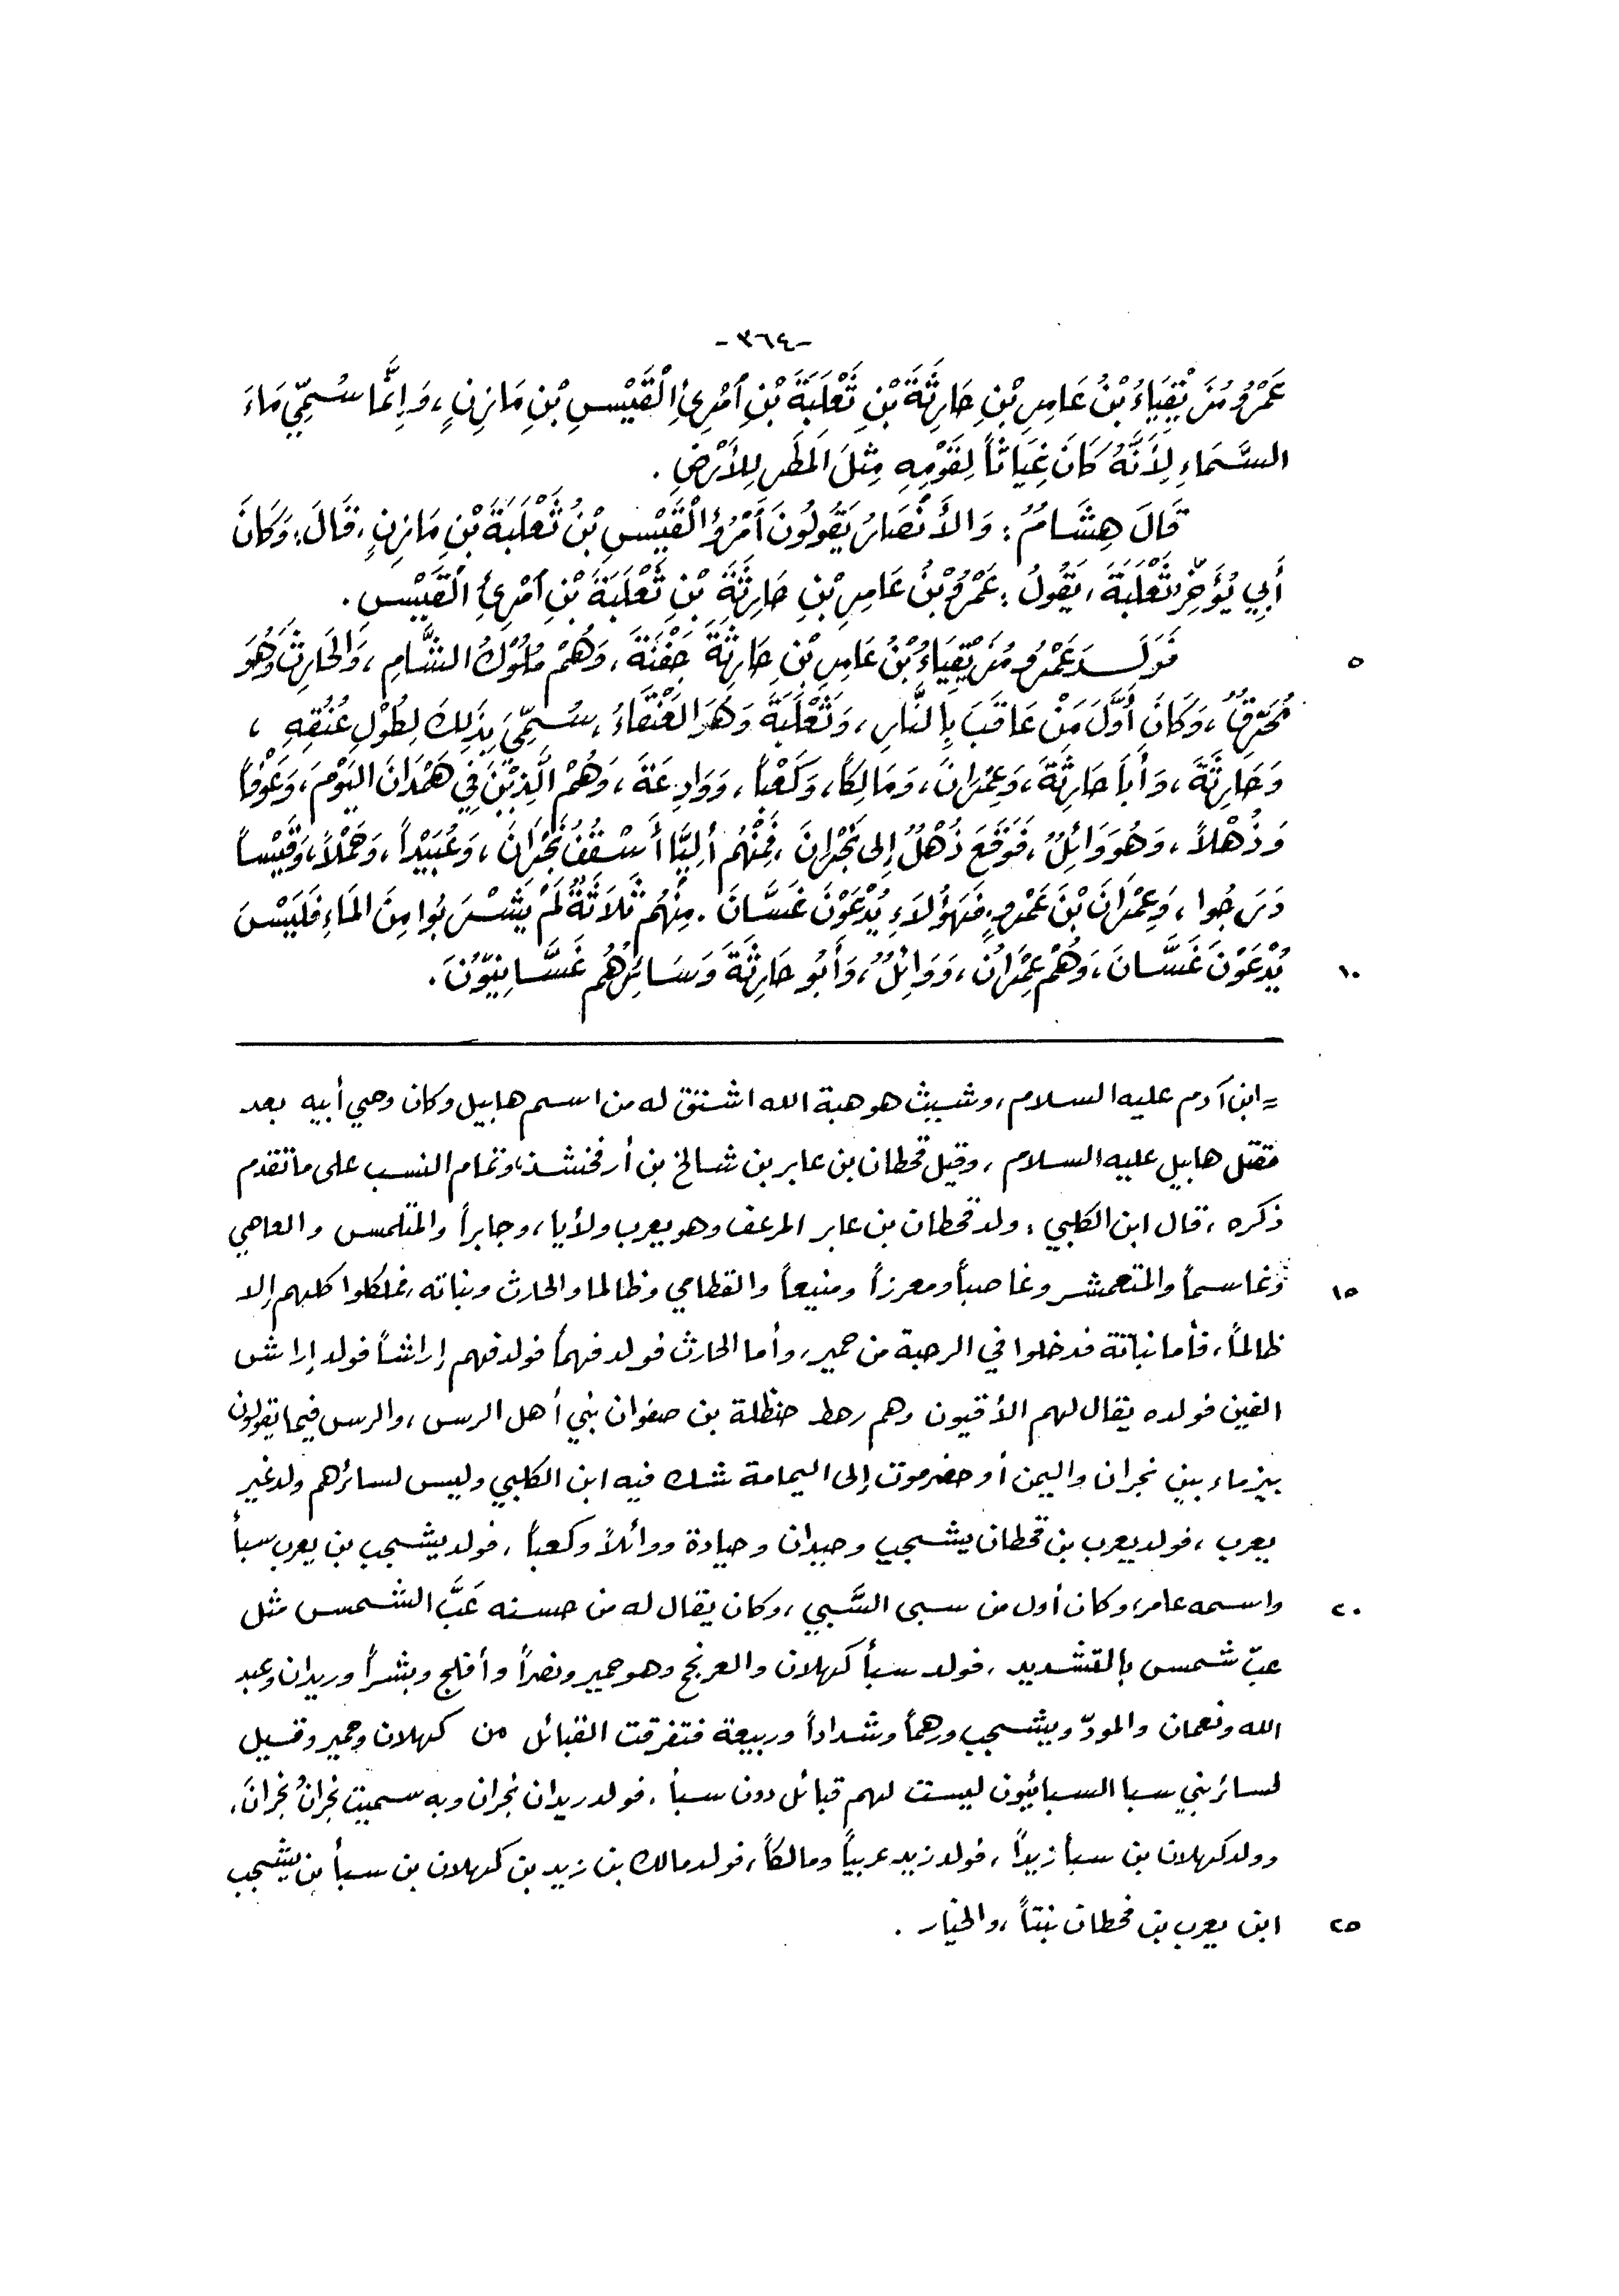 -٣٦٤-
عَمْرُو مُزَيْقِيَاءُ بْنُ عَامِرِ بْنِ حَارِثَةَ بْنِ ثَعْلَبَةَ بْنِ ٱمْرِئِ ٱلْقَيْسِ بْنِ مَازِنٍ، وَإِنَّمَا سُمِّيَ مَاءَ
السَّمَاءِ لِأَنَّهُ كَانَ غِيَاثاً لِقَوْمِهِ مِثْلَ المَطَرِ لِلأَرْضِ .
قَالَ هِشَامٌ: وَالأَنْصَارُ يَقُولُونَ ٱمْرُؤُ ٱلْقَيْسِ بْنُ ثَعْلَبَةَ بْنِ مَازِنٍ، قَالَ: وَكَانَ
أَبِي يُؤَخِّرُ ثَعْلَبَةَ، يَقُولُ: عَمْرُو بْنُ عَامِرِ بْنِ حَارِثَةَ بْنِ ثَعْلَبَةَ بْنِ ٱمْرِئِ ٱلْقَيْسِ .
٥ فَوَلَدَ عَمْرُو مُزَيْقِيَاءُ بْنُ عَامِرِ بْنِ حَارِثَةَ جَفْنَةَ، وَهُمْ مُلُوْكُ الشَّامِ، وَالحَارِثَ وَهُوَ
مُحَرِّقٌ، وَكَانَ أَوَّلَ مَنْ عَاقَبَ بِالنَّارِ، وَثَعْلَبَةَ وَهُوَ العَنْقَاءُ، سُمِّيَ بِذَلِكَ لِطُوْلِ عُنُقِهِ ،
وَحَارِثَةَ، وَأَبَا حَارِثَةَ، وَعِمْرَانَ، وَمَالِكاً، وَكَعْباً، وَوَادِعَةَ، وَهُمْ الَّذِيْنَ فِي هَمْدَانَ اليَوْمَ، وَعَوْفاً
وَذُهْلاً، وَهُوَ وَائِلٌ، فَوَقَعَ ذُهْلٌ إِلى نَجْرَانَ، فَمِنْهُم أَلِيَّا أَسْقُفُ نَجْرَانَ، وَعُبَيْداً، وَحَمْلاً، وَقَيْساً
دَرَجُوا، وَعِمْرَانَ بْنَ عَمْرٍو، فَهَؤُلاَءِ يُدْعَوْنَ غَسَّانَ. مِنْهُم ثَلاَثَةٌ لَمْ يَشْرَبُوا مِنَ المَاءِ فَلَيْسَ
١٠ يُدْعَوْنَ غَسَّانَ، وَهُمْ عِمْرَانُ، وَوَائِلٌ، وَأَبُو حَارِثَةَ وَسَائِرُهُم غَسَّانِيّوُنَ .
= ابن آدم عليه السلام، وشيث هو هبة الله اشتق له من اسم هابيل وكان وصي أبيه بعد
مقتل هابيل عليه السلام، وقيل قحطان بن عابر بن شالخ بن أرفخشذ، وتمام النسب على ما تقدم
ذكره، قال ابن الكلبي: ولد قحطان بن عابر المرعف وهو يعرب ولأيا، وجابراً والمتلمس والعاصي
١٥ وغاسماً والمتعمشر وغاصباً ومعرزاً ومنيعاً والقطامي وظالما والحارث ونباته، فهلكوا كلهم إلا
ظالماً، فأما نباتة فدخلوا في الرحبة من حمير، وأما الحارث فولد فهماً فولد فهم إراشاً فولد إراش
القين فولده يقال لهم الأقيون وهم رهط حنظلة بن صفوان نبي أهل الرس، والرس فيما يقولون
بئر ماء بين نجران واليمن أو حضرموت إلى اليمامة شك فيه ابن الكلبي وليس لسائرهم ولد غير
يعرب، فولد يعرب بن قحطان يشجب وحيدان وحيادة ووائلاً وكعباً، فولد يشجب بن يعرب سبأ
٢٠ واسمه عامر، وكان أول من سبى السَّبي، وكان يقال له من حسنه عَبَّ الشمس مثل
عبّ شمس بالتشديد، فولد سبأ كهلان والعرنج وهو حمير ونصراً وأفلح وبشراً وريدان وعبد
الله ونعمان والمودّ ويشجب ورهماً وشداداً وربيعة فتفرقت القبائل من كهلان وحمير وقيل
لسائر بني سبا السبائيون ليست لهم قبائل دون سبأ، فولد ريدان نجران وبه سميت نجرانُ نجرانَ،
وولد كهلان بن سبأ زيداً، فولد زيد عريباً ومالكاً، فولد مالك بن زيد بن كهلان بن سبأ بن يشجب
٢٥ ابن يعرب بن قحطان نبتاً، والخيار .